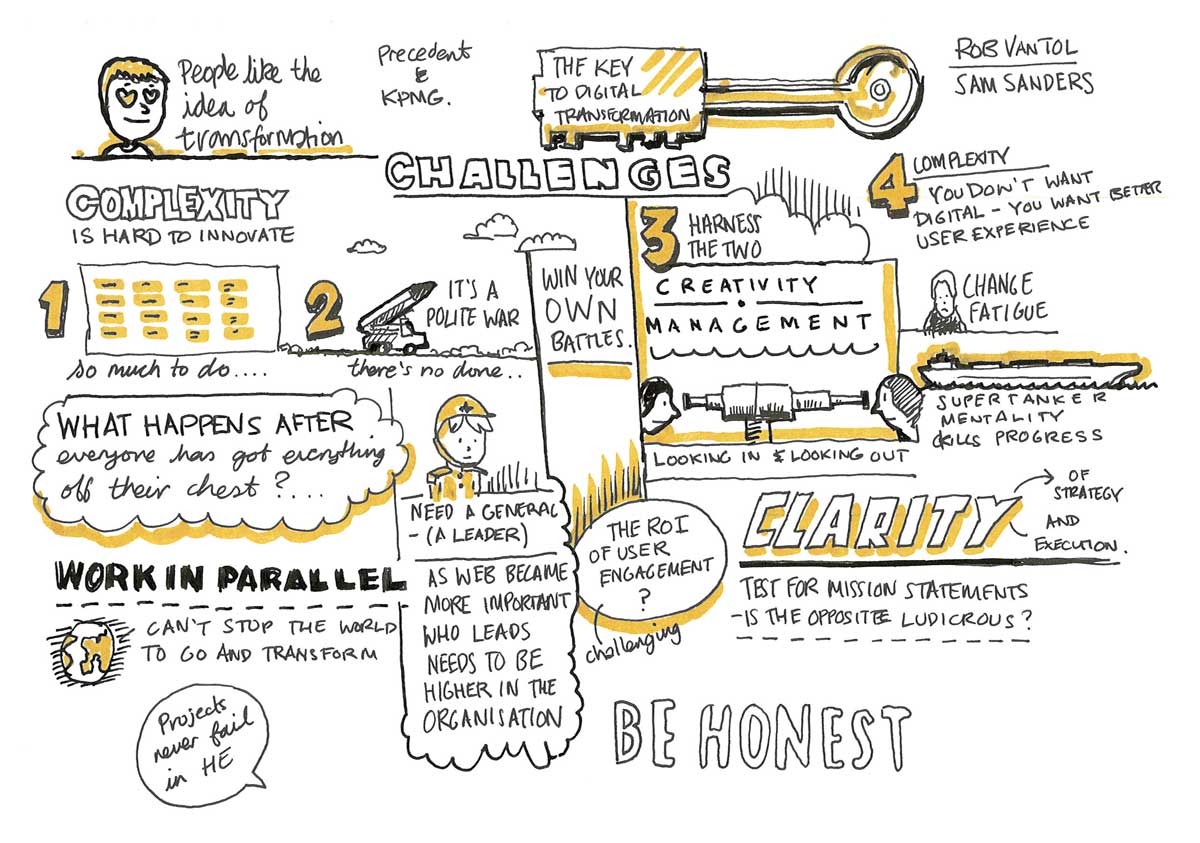 People like the
idea of
transformation
Precedent
&
KPMG.
THE KEY
TO DIGITAL
TRANSFORMATION
ROB VAN TOL
SAM SANDERS
CHALLENGES
COMPLEXITY
IS HARD TO INNOVATE
1
so much to do....
2
IT'S A
POLITE WAR
there's no done..
WIN YOUR
OWN
BATTLES.
3
HARNESS
THE TWO
CREATIVITY
MANAGEMENT
LOOKING IN & LOOKING OUT
4
COMPLEXITY
YOU DON'T WANT
DIGITAL - YOU WANT BETTER
USER EXPERIENCE
CHANGE
FATIGUE
SUPERTANKER
MENTALITY
KILLS PROGRESS
WHAT HAPPENS AFTER
everyone has got everything
off their chest?....
NEED A GENERAL
- (A LEADER)
AS WEB BECAME
MORE IMPORTANT
WHO LEADS
NEEDS TO BE
HIGHER IN THE
ORGANISATION
THE ROI
OF USER
ENGAGEMENT
?
challenging
CLARITY
OF
STRATEGY
AND
EXECUTION.
TEST FOR MISSION STATEMENTS
- IS THE OPPOSITEE LUDICROUS?
WORK IN PARALLEL
CAN'T STOP THE WORLD
TO GO AND TRANSFORM
Projects
never fail
in HE
BE HONEST